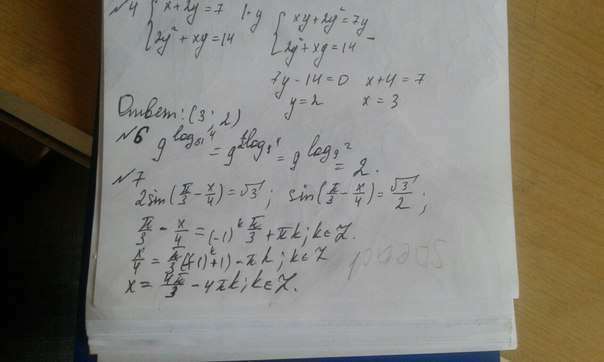 №4 { x+2y=7 |·y { xy+2y²=7y
{ 2y²+xy=14 { 2y²+xy=14 -
7y-14=0 x+4=7
y=2 x=3
Ответ: (3; 2)
№6 9^{log_{81} 4} = 9^{\frac{1}{2} log_9 4} = 9^{log_9 2} = 2.
№7
2sin(π/3 - x/4) = √3; sin(π/3 - x/4) = √3/2;
π/3 - x/4 = (-1)^k π/3 + πk; k∈Z.
x/4 = π/3((-1)^k+1) - πk; k∈Z
x = 4π/3 - 4πk; k∈Z.